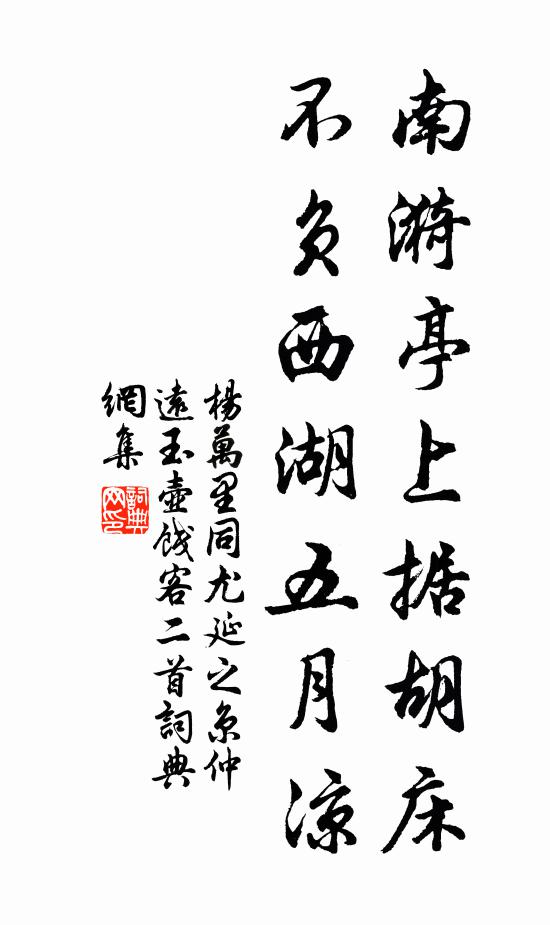 南漪亭上据胡床
不负西湖五月凉
楊萬里同尤延之京仲
遠玉壺餞客二首詞典
網集
詞典网印